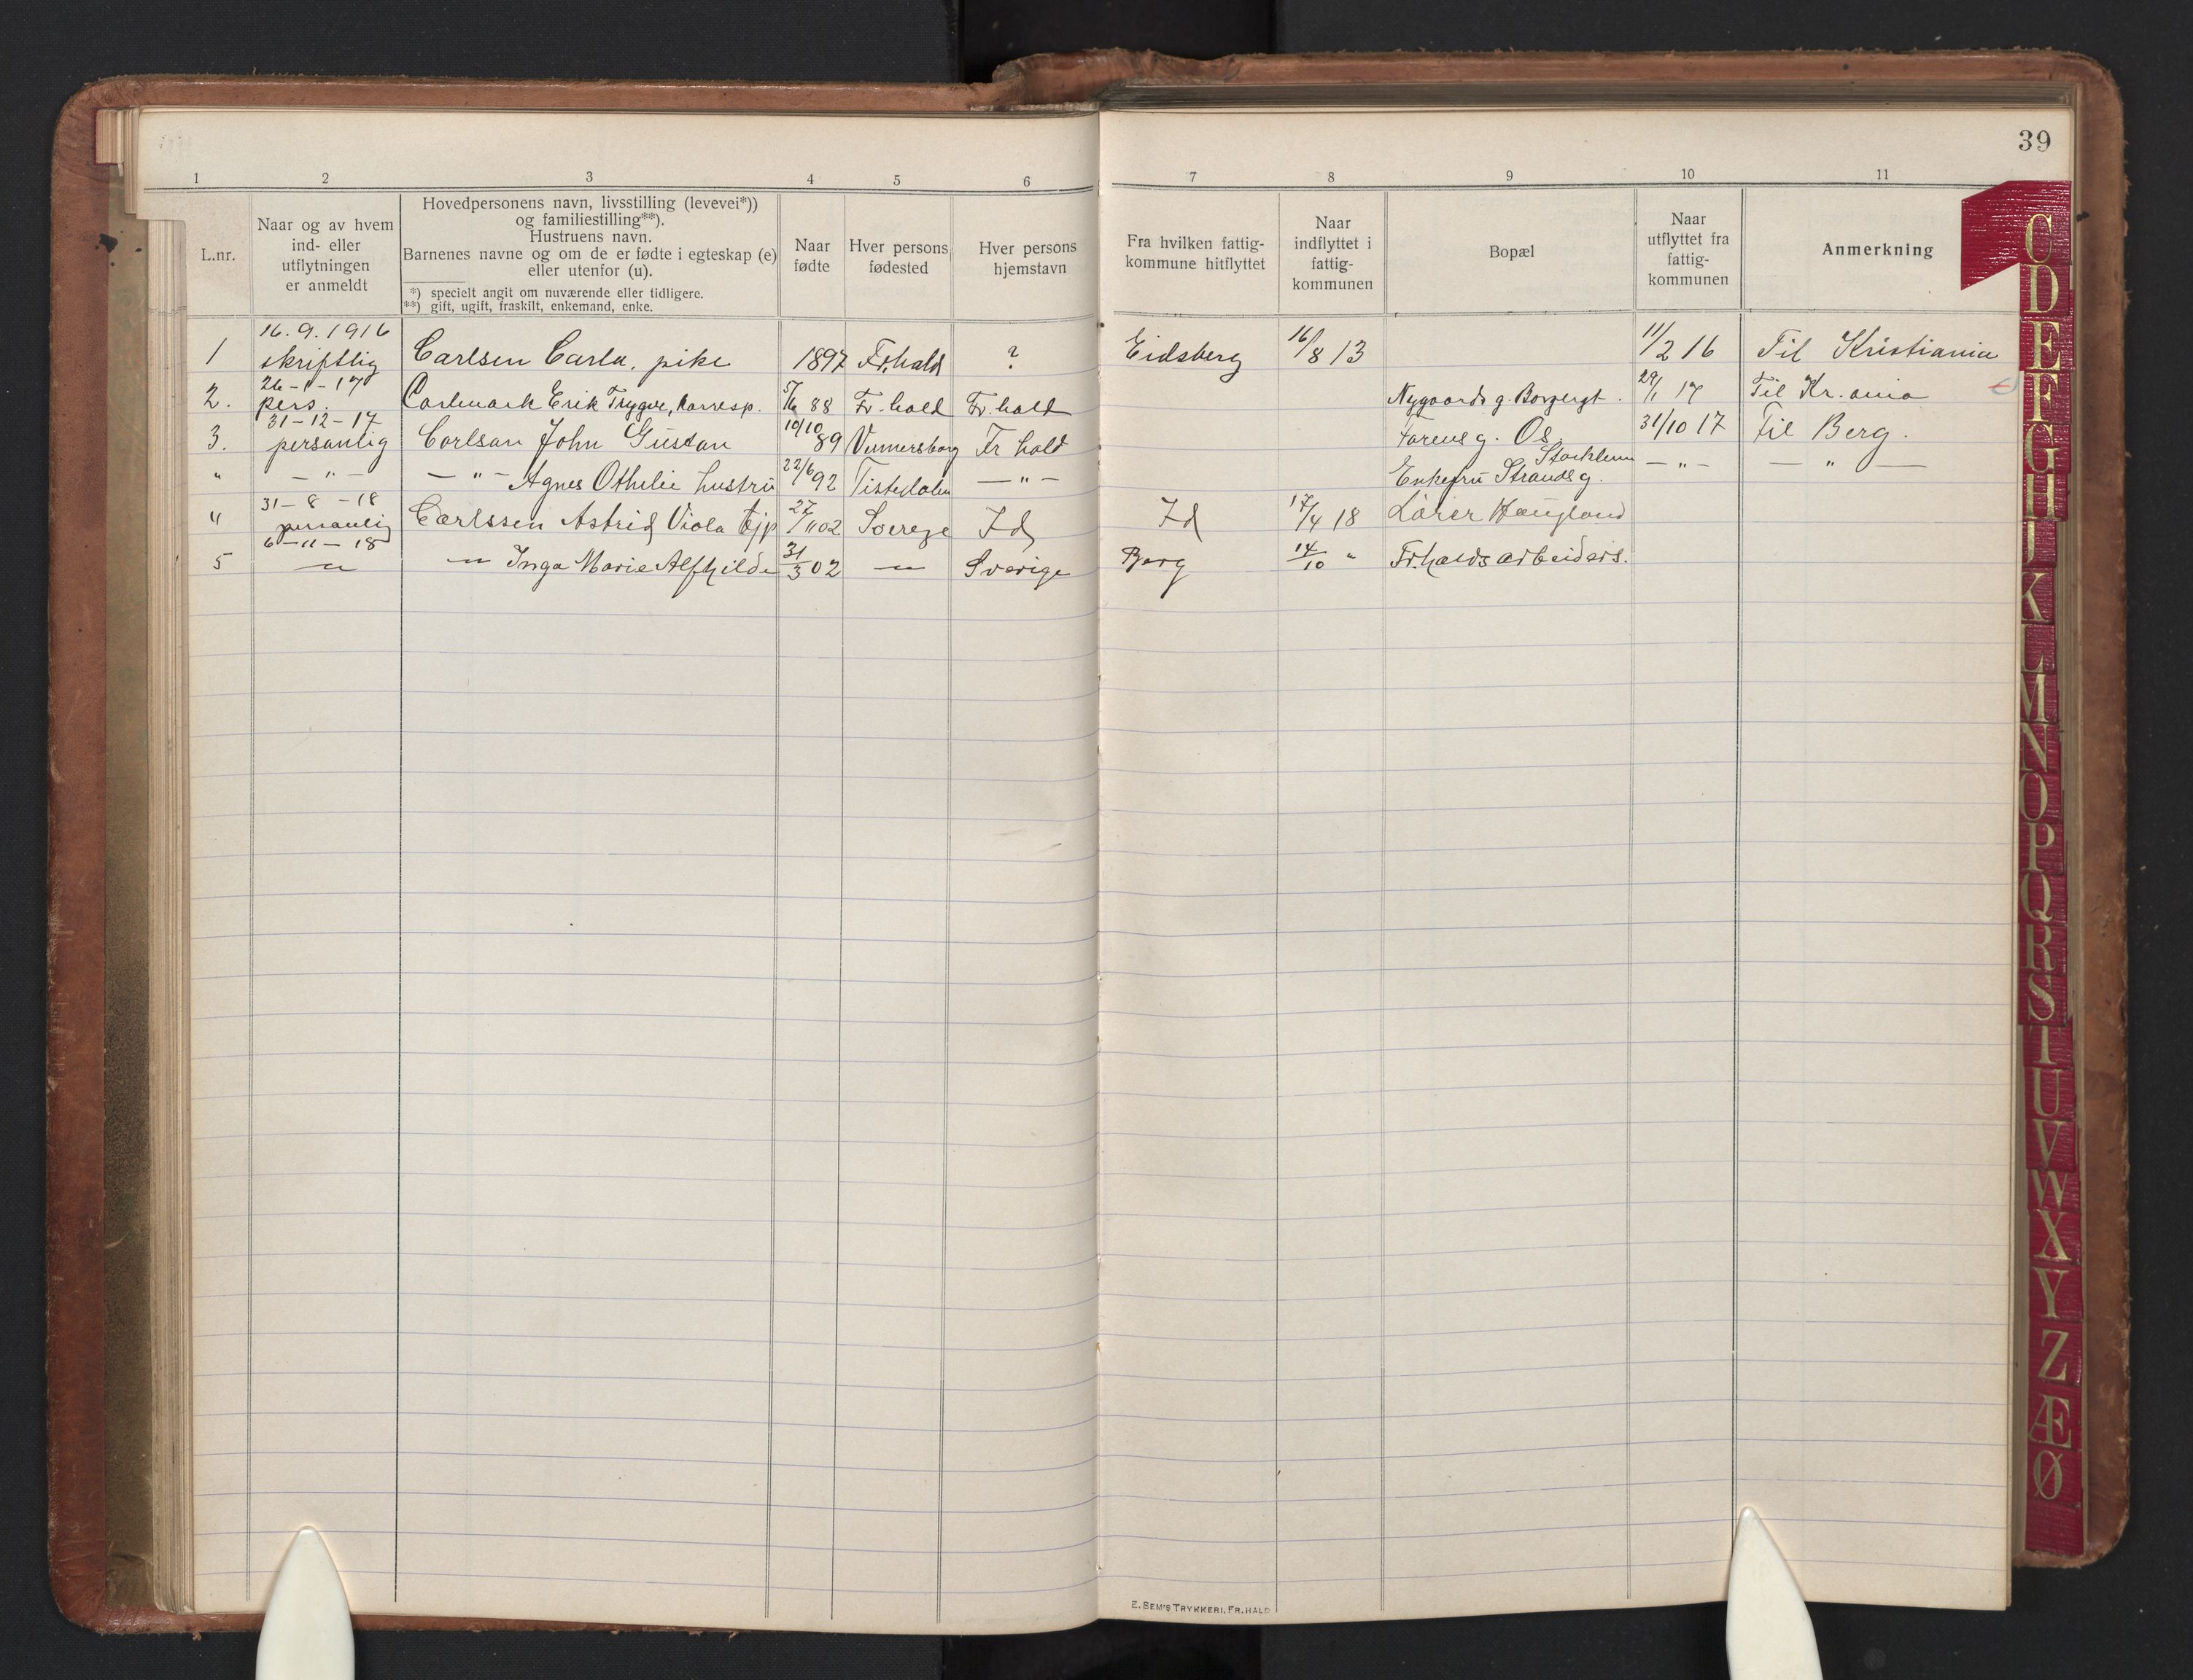 39
1 2 3 4 5 6 7 8 9 10 11
L.nr.
Naar og av hvem
ind- eller
utflytningen
er anmeldt
Hovedpersonens navn, livsstilling (levevei*))
og familiestilling**).
Hustruens navn.
Barnenes navne og om de er fødte i egteskap (e)
eller utenfor (u).
*) specielt angit om nuværende eller tidligere.
**) gift, ugift, fraskilt, enkemand, enke.
Naar
fødte
Hver persons
fødested
Hver persons
hjemstavn
Fra hvilken fattig-
kommune hitflyttet
Naar
indflyttet i
fattig-
kommunen
Bopæl
Naar
utflyttet fra
fattig-
kommunen
Anmerkning
16.9.1916
1 skriftlig Carlsen Carla, pike 1897 Fr.hald ? Eidsberg 16/8 13 11/2 16 Til Kristiania
26-1-17
2. pers. Carlmark Erik Trygve, korresp. 88 Fr.hald Fr.hald Nygaardsg. Borgergt. 29/1 17 Til Kr.ania
31-12-17
3. personlig Carlson John Gustav 10/10 89 Vennersborg Fr hald g. Os 31/10 17 Til Berg.
" - " - - " - Agnes Othilie hustru 22/6 92 Tistedalen - " - Enkefru Strandsg. - " - - " -
31-8-18
4 personlig Carlssen Astrid Viola tjp 27/11 02 Sverge Id Id 17/4 18 Lærer Haugland
6-11-18
5 -"- -"- Inga Marie Alfhilde 31/3 02 -"- Sverige Berg 14/10 " Fr.halds arbeiders.
E. SEM'S TRYKKERI, FR.HALD
C
D
E
F
G
H
I
K
L
M
N
O
P
Q
R
S
T
U
V
W
X
Y
Z
Æ
Ø